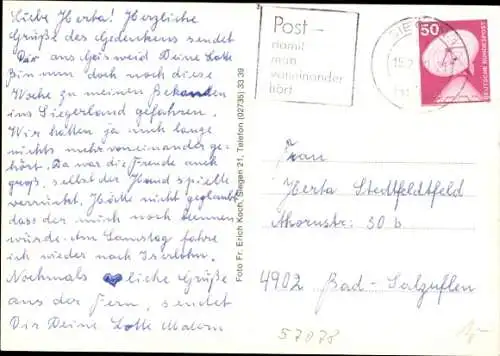 Liebe Herta! Herzliche
Grüße des Gedenkens sendet
Dir aus Geisweid Deine Lotte
Bin nun doch noch diese
Woche zu meinen Bekannten
ins Siegerland gefahren.
Wir hatten ja auch lange
nichts mehr voneinander ge-
hört. Da war die Freude auch
groß, selbst der Hund spielte
verrückt. Hätte nicht geglaubt
dass der mich noch kennen
würde. Am Samstag fahre
ich wieder nach Iserlohn.
Nochmals liche Grüße
aus der Fern, sendet
Dir Deine Lotte
Foto Fr. Erich Koch, Siegen 21, Telefon (02735) 33 39
Post -
damit
man
voneinander
hört
SIEGEN
50
DEUTSCHE BUNDESPOST
Frau
Herta Stedtfeldtfeld
Ahornstr. 30 b
4902 Bad-Salzuflen
57078